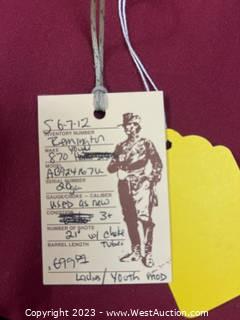 5 6-7-12
INVENTORY NUMBER
Remington
MAKE
870
MODEL
SERIAL NUMBER
20ga
GAUGE/CHOKE - CALIBER
used as new
3+
NUMBER OF SHOTS
21" w/ Choke
BARREL LENGTH Tubes
Ladies/ Youth mod
Copyright 2023 - www.WestAuction.com